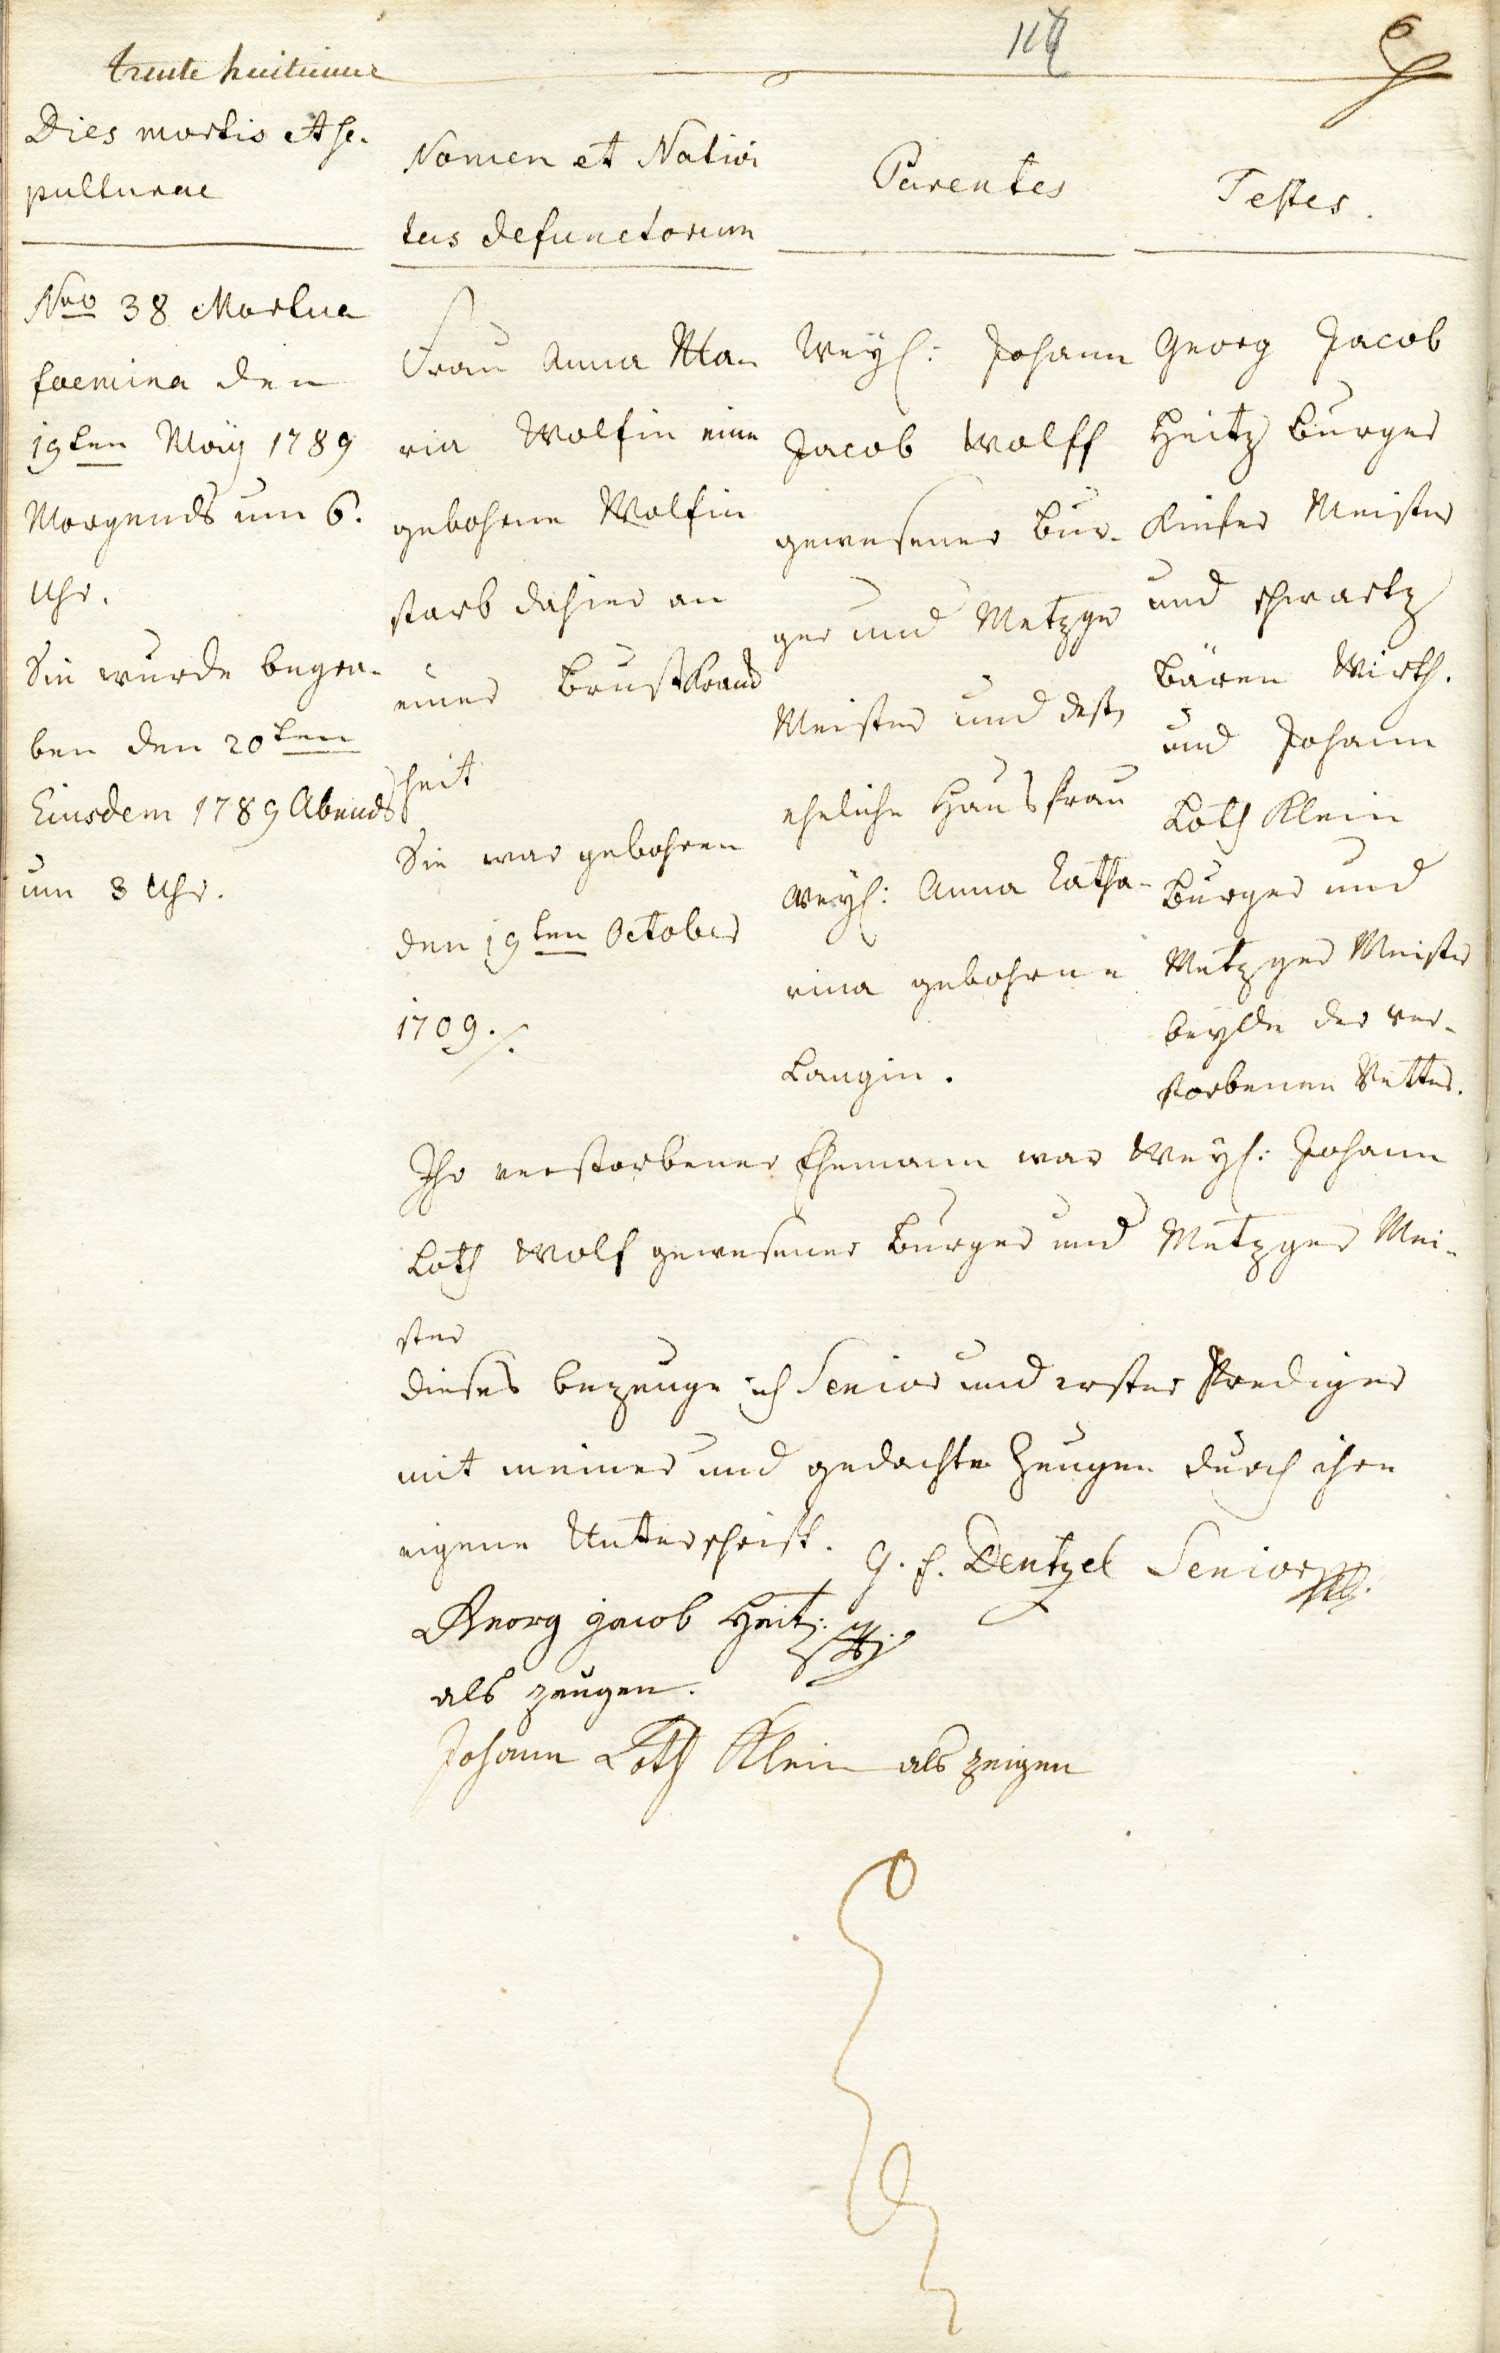 trente huitieme
Dies mortis et se-
pulturae
Nro 38 Mortua
foemina den
19ten Maÿ 1789
Morgends um 6.
Uhr.
Sie wurde begra-
ben den 20ten
Eiusdem 1789 Abends
um 3 Uhr.
Nomen et Nativi
tas defunctorum
Frau Anna Ma-
ria Wolfin eine
gebohrne Wolfin
starb dahier an
einer Brustkranck
heit
Sie war gebohren
den 19ten October
1709./.
Parentes
Weyl: Johann
Jacob Wolff
gewesener Bur-
ger und Metzger
Meister und deßen
eheliche Hausfrau
Weyl: Anna Catha-
rina gebohrne
Langin.
Testes.
Georg Jacob
Heitz Burger
Kiefer Meister
und schwartz
Bären Wirth.
und Johann
Loth Klein
Burger und
Metzger Meister
beyde der ver-
storbenen Vetter.
Ihr verstorbener Ehemann war Weyl: Johann
Loth Wolf gewesener Burger und Metzger Mei-
ster
dieses bezeuge ich Senior und erster Prediger
mit meiner und gedachte Zeugen durch ihre
eigene Unterschrift. G. F. Dentzel Senior
Georg jacob Heitz:
als zeugen.
Johann Loth Klein als zeigen